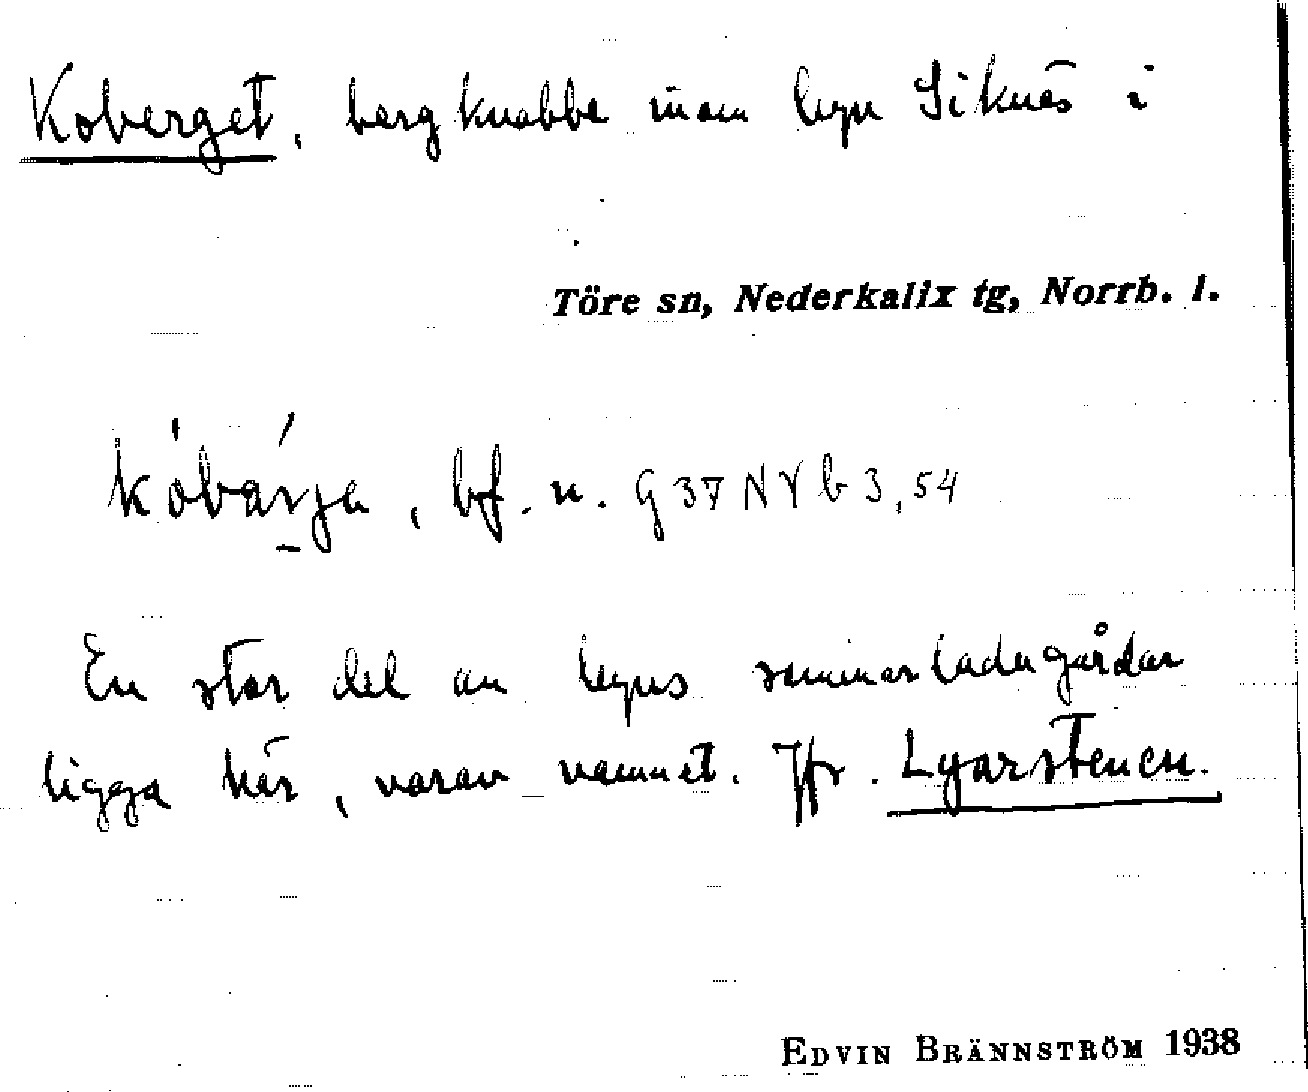 Koberget, bergknabbe inom byn Siknäs i
Töre sn, Nederkalix tg, Norrb. l.
bf. n. G 37 N Y b 3, 54
En stor del av byns sommarladugårdar
ligga här, varav namnet. Jfr. Lyarstenen.
EDVIN BRÄNNSTRÖM 1938